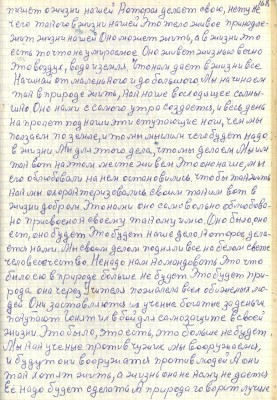 168
пишет о жизни нашей Которая делает свою, нету
чего такого в жизни нашей Это тело живое принадле-
жит жизни нашей Оно может жить, а в жизни это
есть то что не умираемое Оно живет жизнью вечно
Это воздух, вода и земля, Что нам дает в жизни все
Начиная от маленького и до большого Мы начинаем
так в природе жить, Как наше восходящее солны-
шко Оно нами с самого утра создается, и весь день
на пролет под нашими ступающие ног, чем мы
ползаем по земле, и то мы мыслим чего будет надо
в жизни. Мы для этого дела, что мы делаем Мы им
так вот на этом месте живем Это оно наше, мы
его облюбовали на нем остановились, чтобы так жить
Как мы охарактеризовались своим таким вот в
жизни добром. Это нами оно самовольно облюбова-
но Присвоено к своему такому имю. Оно было, оно
есть, оно будет Это будет наше дело Которое дела-
ется нами. Мы своим делом подняли все на белом свете
человечество. Не надо нам Командовать Это что
было с в природе больше не будет Это будет При-
рода она через Учителя пожалела всех обиженных лю-
дей Они заставляются их ученые богатые за деньги
покупают гонят их в бой для самозащиты в своей
жизни Это было, это есть, это больше не будет.
Мы Как ученые против чужих мы вооружаемся,
и будут они вооружатся против людей А они
так хотят жить, а жизнь она не Кому не дается
Ее надо будет сделать А природа говорит лучше